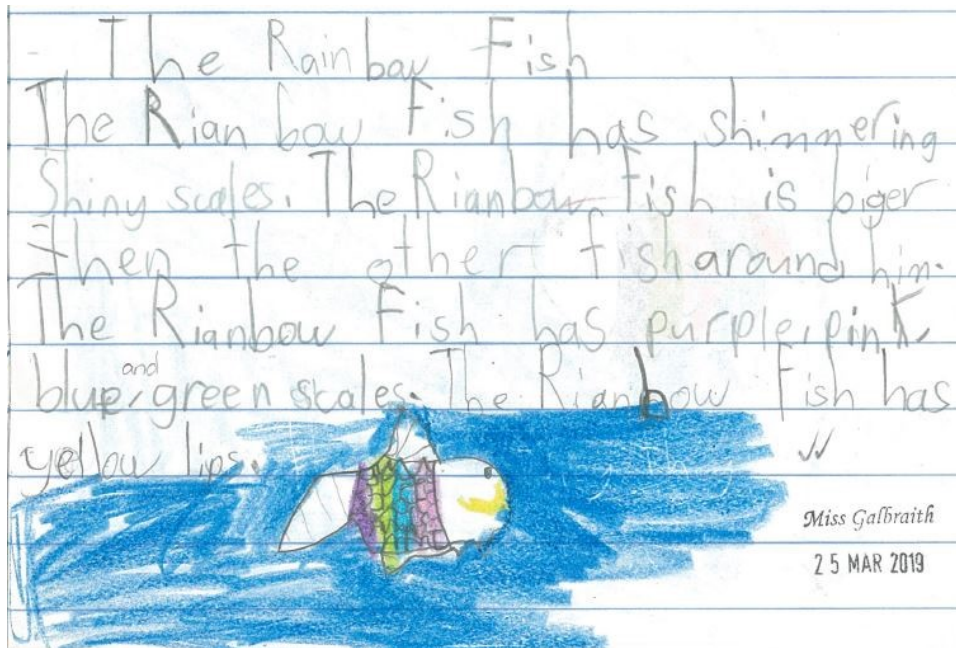 The Rainbow Fish
The Rian bow Fish has shimmering
Shiny scales. The Rianbow Fish is biger
then the other fish around him.
The Rianbow Fish has purple, pink,
blue, and green scales. The Rianbow Fish has
yellow lips.
Miss Galbraith
25 MAR 2019